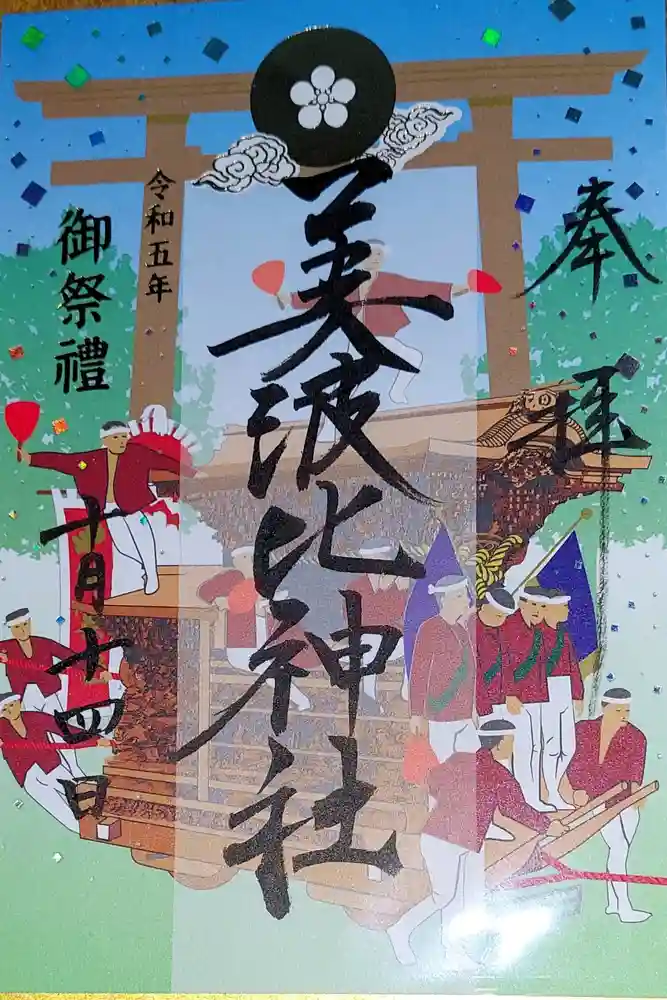 奉拝
美波比神社
令和五年
御祭禮
十月十四日